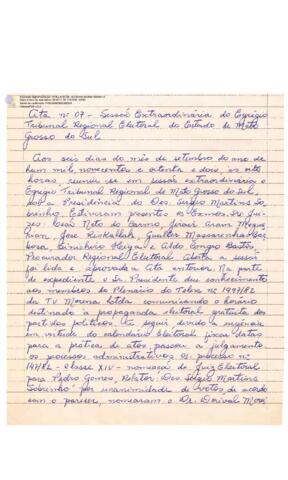 Ata nº 07 - Sessão Extraordinária do Egrégio
Tribunal Regional Eleitoral do Estado de Mato
Grosso do Sul
Aos seis dias do mês de setembro do ano de
hum mil novecentos e oitenta e dois, às oito
horas, reuniu-se em sessão extraordinária o
Egrégio Tribunal Regional de Mato Grosso do Sul,
sob a Presidência do Des. Sérgio Martins So-
brinho. Estiveram presentes os Exmos. Srs. Juí-
zes: Leão Neto do Carmo, Jirair Aram Megue-
rian, José Gualter Mascarenhas Bar-
bosa, Higa e Aldo
Procurador Regional Eleitoral. Aberta a sessão
foi lida e aprovada a Ata anterior. Na parte
de expediente o Sr. Presidente deu conhecimento
aos membros do Plenário do Telex nº
da TV Morena Ltda comunicando o horário
destinado à propaganda eleitoral gratuita dos
partidos políticos. A seguir, devido a urgência
em virtude do calendário Eleitoral fixar datas
para a prática de atos, passou a julgamento
os processos administrativos. Os processo nº
147/82 - classe XIV - nomeação de Juiz Eleitoral
para Pedro Gomes, Relator: Des. Sérgio Martins
Sobrinho "por unanimidade de votos, de acordo
com o parecer, nomearam o Dr. Dorival